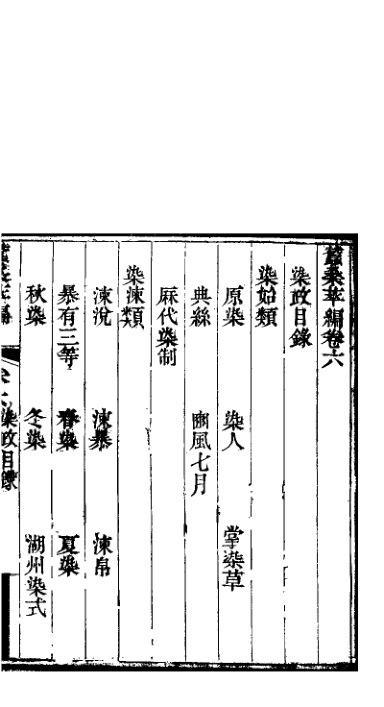 蠶桑萃編卷六
染政目錄
染始類
原染 染人 掌染草
典絲 豳風七月
厤代染制
染湅類
湅涚 湅暴 湅帛
暴有三等 春染 夏染
秋染 冬染 湖州染式
染政目錄